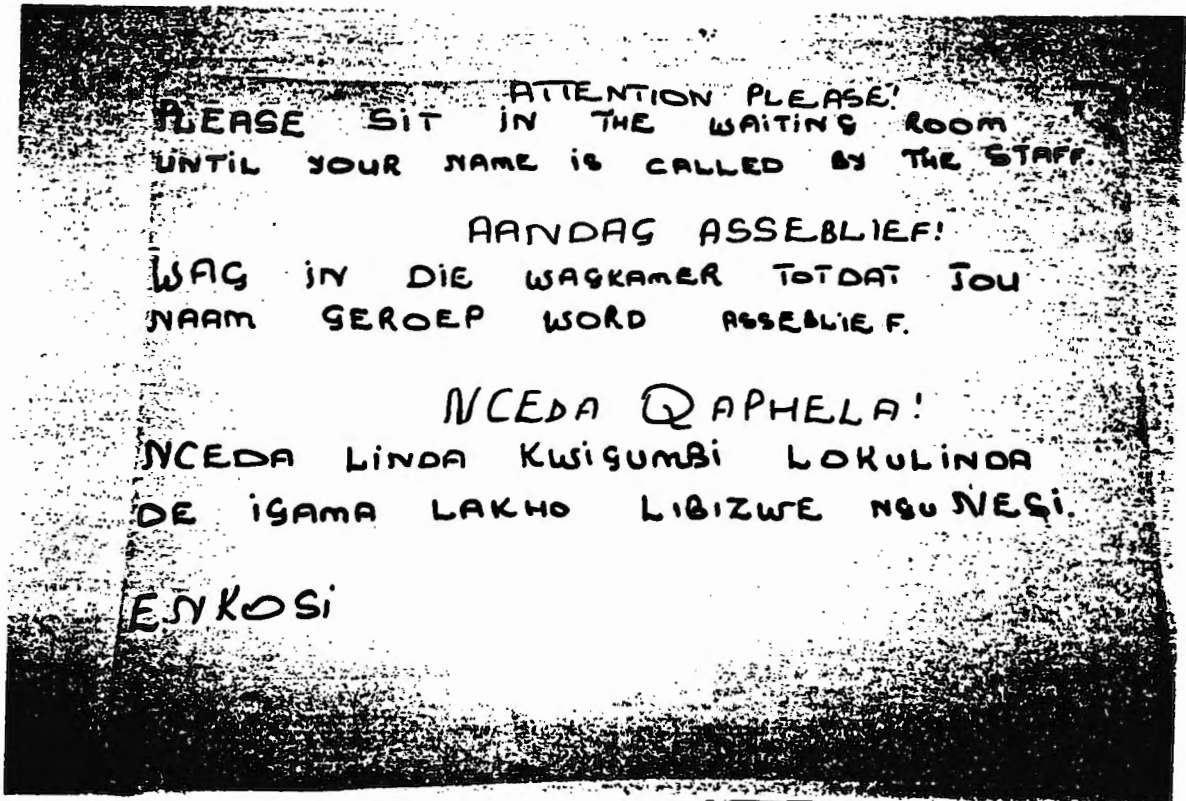 ATTENTION PLEASE!
PLEASE SiT iN THE WAiTiNG ROOM
UNTiL YOUR NAME iS CALLED BY THE STAFF.
AANDAG ASSEBLIEF!
WAG iN DIE WAGKAMER TOTDAT JOU
NAAM GEROEP WORD ASSEBLIEF.
NCEDA QAPHELA!
NCEDA LiNDA KWiGUMBi LOKULiNDA
DE iGAMA LAKHO LIBIZWE NGUNESi.
ENKOSi